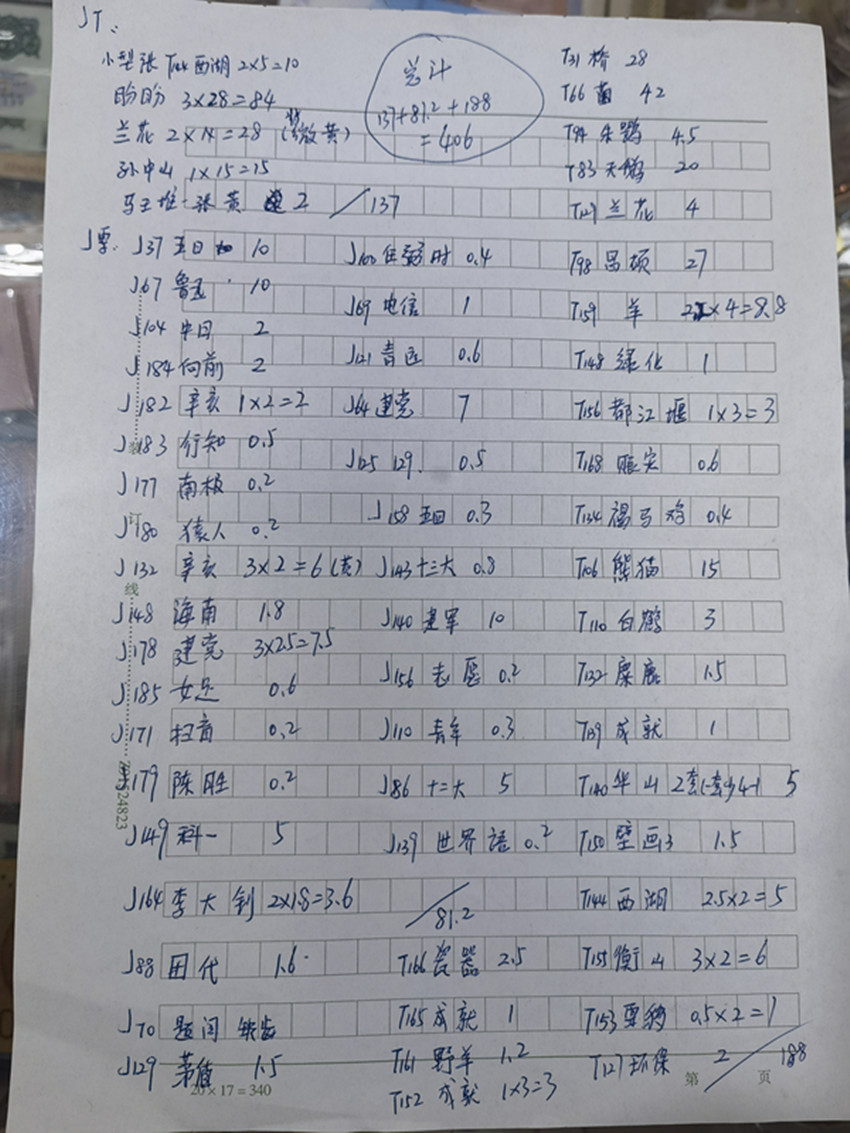 JT、
小型张 T144西湖 2×5=10
盼盼 3×28=84
兰花 2×14=28 (微黄)
孙中山 1×15=15
马王堆一张黄 2 /137
总计
137+81.2+188
=406
J票、J37 五日 10
J67 鲁迅 10
J104 中日 2
J184 向前 2
J182 辛亥 1×2=2
J183 行知 0.5
J177 南极 0.2
J180 猿人 0.2
J132 辛亥 3×2=6(黄)
J148 海南 1.8
J178 建党 3×2.5=7.5
J185 女足 0.6
J171 扫盲 0.2
J179 陈胜 0.2
J149 科一 5
J164 李大钊 2×1.8=3.6
J88 田代 1.6
J70 题词 缺齿
J129 茅盾 1.5
J100 任弼时 0.4
J69 电信 1
J121 青运 0.6
J64 建党 7
J125 129. 0.5
J158 五四 0.3
J143 十三大 0.8
J140 建军 10
J156 志愿 0.2
J110 青年 0.3
J86 十二大 5
J139 世界语 0.2
/81.2
T166 瓷器 2.5
T165 成就 1
T161 野羊 1.2
T152 成就 1×3=3
T31 桥 28
T66 菌 42
T94 朱鹮 4.5
T83 天鹅 20
T129 兰花 4
T98 昌硕 27
T159 羊 2.2×4=8.8
T148 绿化 1
T156 都江堰 1×3=3
T168 赈灾 0.6
T134 褐马鸡 0.4
T106 熊猫 15
T110 白鹤 3
T132 麋鹿 1.5
T139 成就 1
T140 华山 2套(一套少4-1 5
T150 壁画3 1.5
T144 西湖 2.5×2=5
T155 衡山 3×2=6
T153 雪豹 0.5×2=1
T127 环保 2 /188
装
订
线
20×17=340
第 页